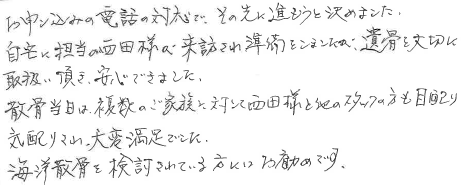 お申し込みの電話の対応で、その先に進もうと決めました。
自宅に担当の西田様が来訪され準備をしましたが、遺骨を大切に
取扱い頂き、安心できました。
散骨当日は、複数のご家族に対して西田様と他のスタッフの方も目配り
気配りされ、大変満足でした。
海洋散骨を検討されている方にはお勧めです。